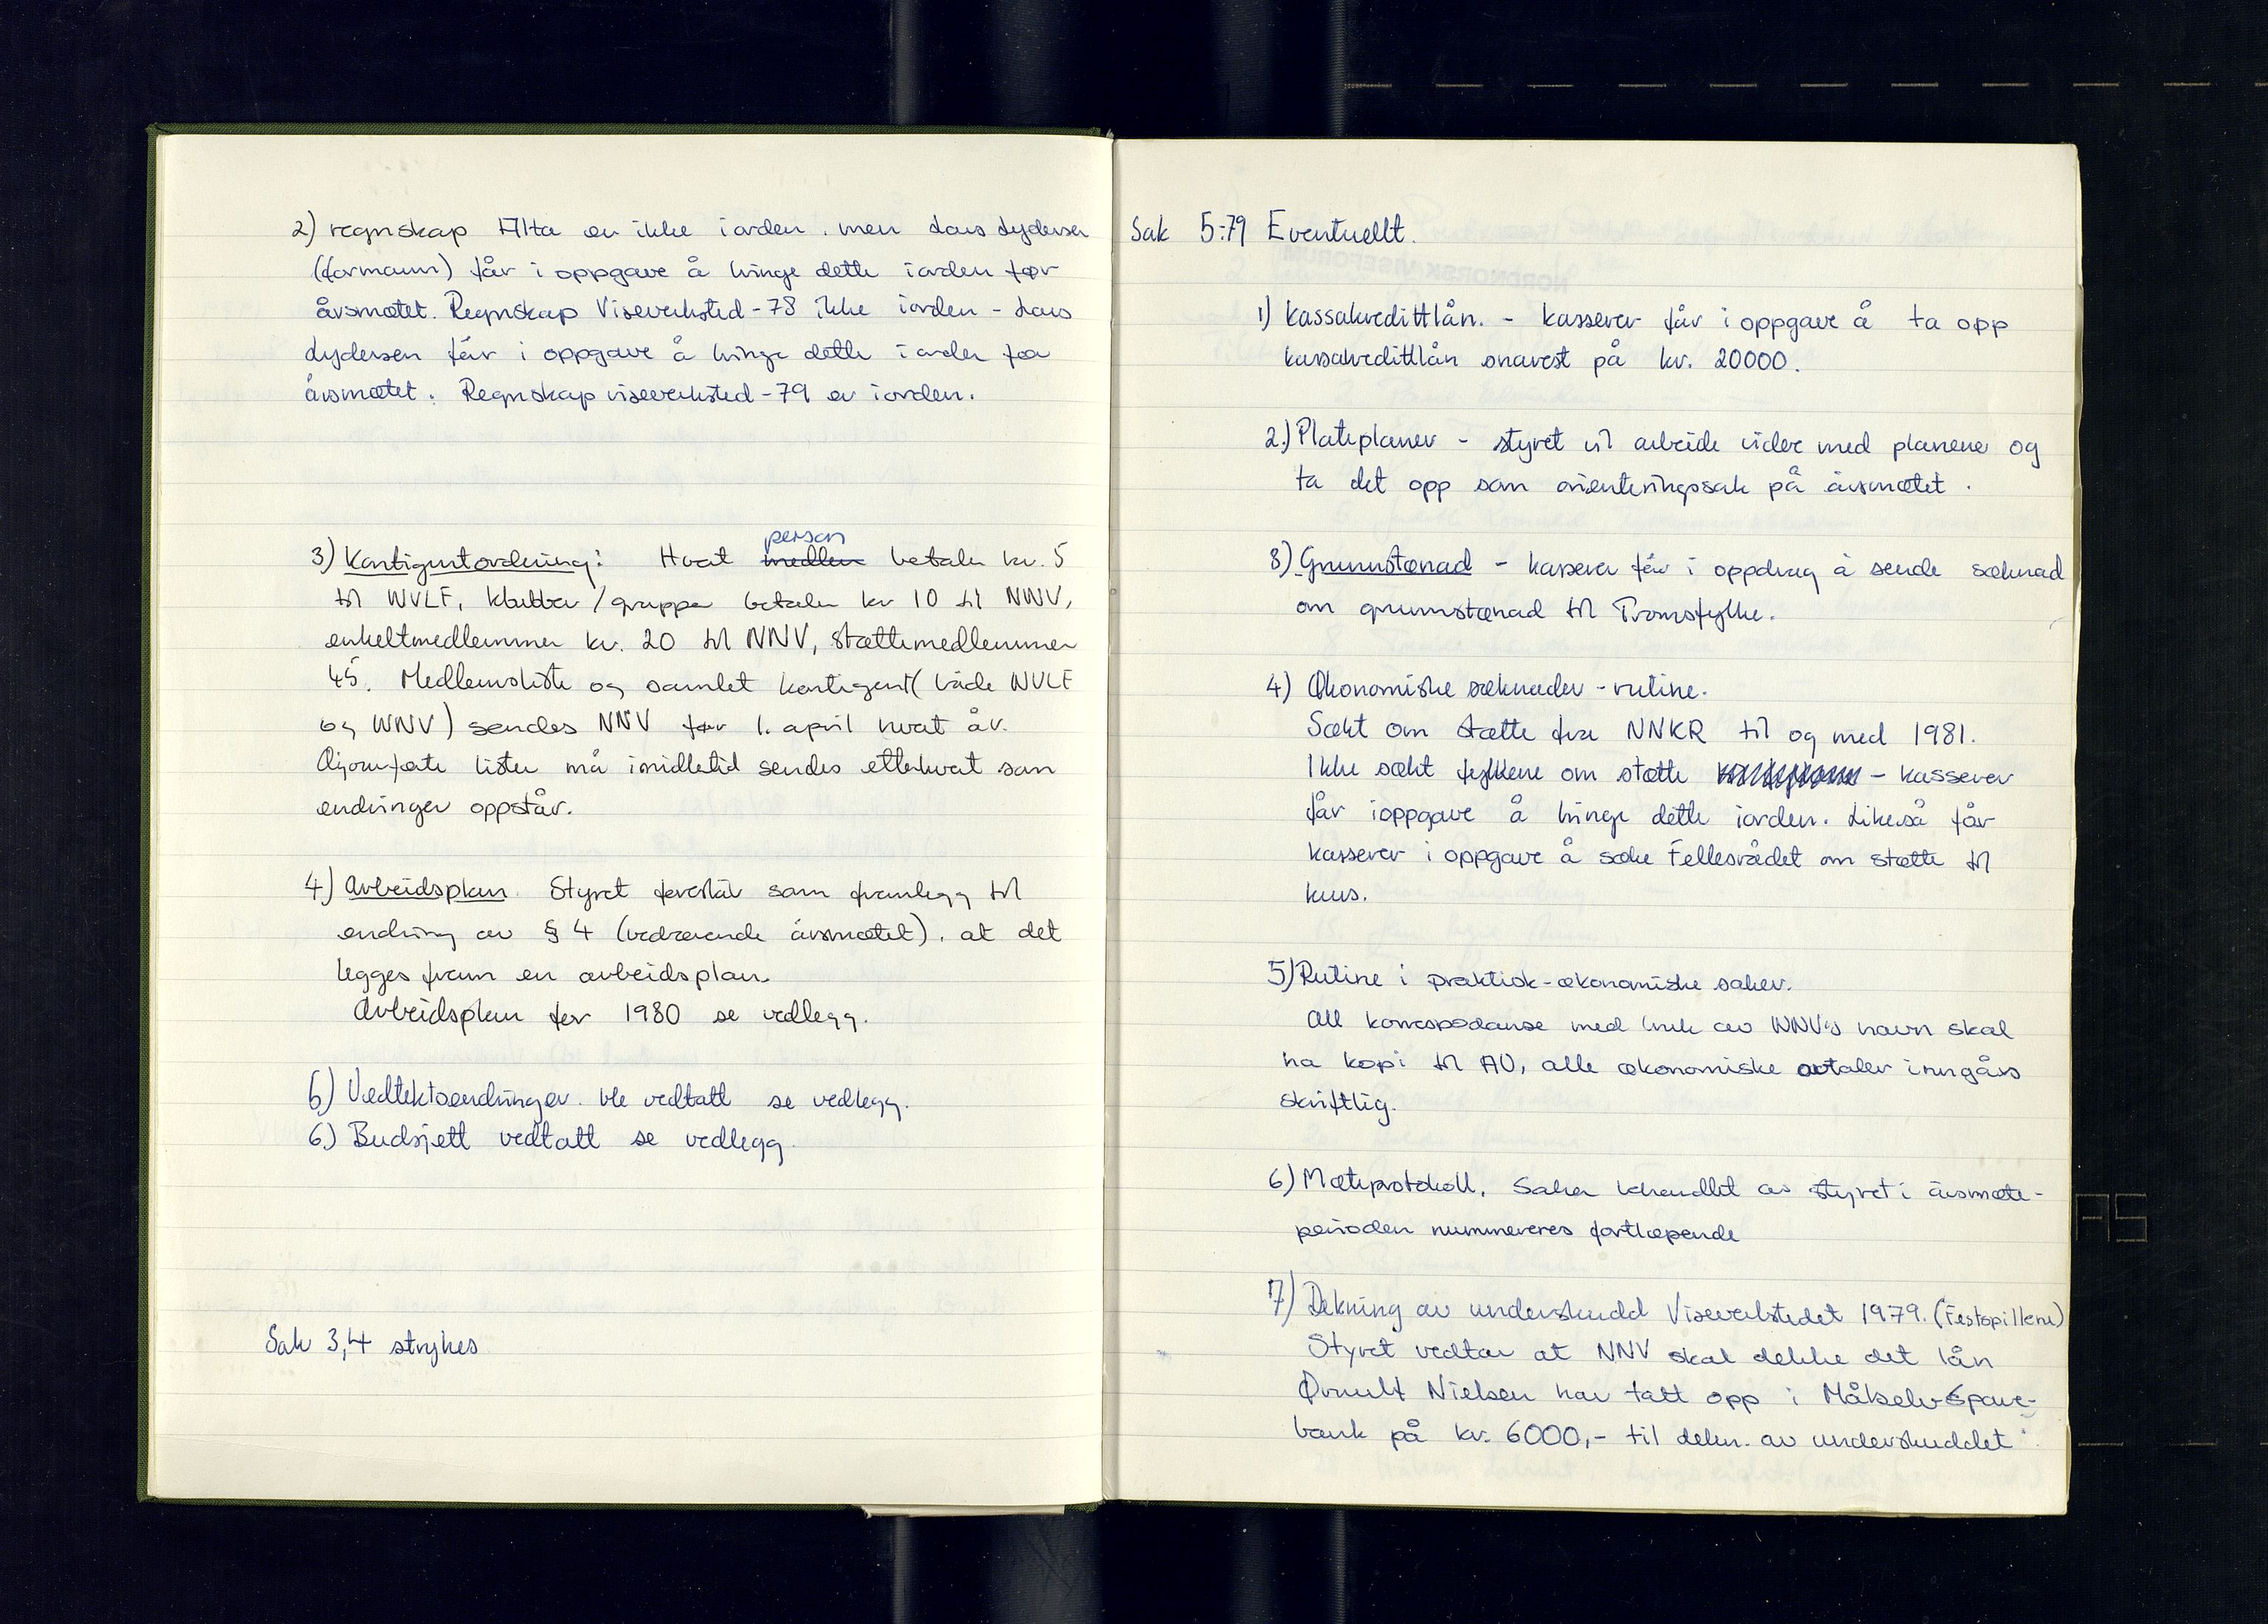 2) regnskap Alta er ikke iorden. men Lars Lydersen
(formann) får i oppgave å bringe dette iorden før
årsmøtet. Regnskap Viseverksted-78 ikke iorden - Lars
Lydersen får i oppgave å bringe dette iorden før
årsmøtet. Regnskap viseverksted-79 er iorden.
3) Kontigentordning: Hvert medlem person betaler kr. 5
til WVLF, klubber/grupper betaler kr 10 til NNV,
enkeltmedlemmer kr. 20 til NNV, støttemedlemmer
45. Medlemsliste og samlet kontigent (både WVLF
og NNV) sendes NNV før 1. april hvert år.
Ajourførte lister må imidletid sendes etterhvert som
endringer oppstår.
4) Arbeidsplan. Styret foreslår som framlegg til
endring av § 4 (vedrørende årsmøtet), at det
legges fram en arbeidsplan.
Arbeidsplan for 1980 se vedlegg.
6) Vedtektsendringer. ble vedtatt se vedlegg.
6) Budsjett vedtatt se vedlegg.
Sak 3,4 strykes
Sak 5:79 Eventuellt.
1) Kassakredittlån. - Kasserer får i oppgave å ta opp
kassakredittlån snarest på kr. 20000.
2.) Plateplaner - styret vil arbeide videre med planene og
ta det opp som orienteringssak på årsmøtet.
3) Grunnstønad - kasserer får i oppdrag å sende søknad
om grunnstønad til Tromsfylke.
4) Økonomiske søknader - rutine.
Søkt om støtte fra NNKR til og med 1981.
Ikke søkt fylkene om støtte - kasserer
får ioppgave å bringe dette iorden. Likeså får
kasserer i oppgave å søke Fellesrådet om støtte til
kurs.
5) Rutine i praktisk-økonomiske saker.
All korrespodanse med bruk av NNV's navn skal
ha kopi til AU, alle økonomiske avtaler inngåes
skriftlig.
6) Møteprotokoll. Saker behandlet av styret i årsmøte-
perioden nummereres fortløpende
7) Dekning av underskudd Viseverkstedet 1979. (Festspillene)
Styret vedtar at NNV skal dekke det lån
Ørnulf Nielsen har tatt opp i Målselv Spare-
bank på kr. 6000,- til dekn. av underskuddet.